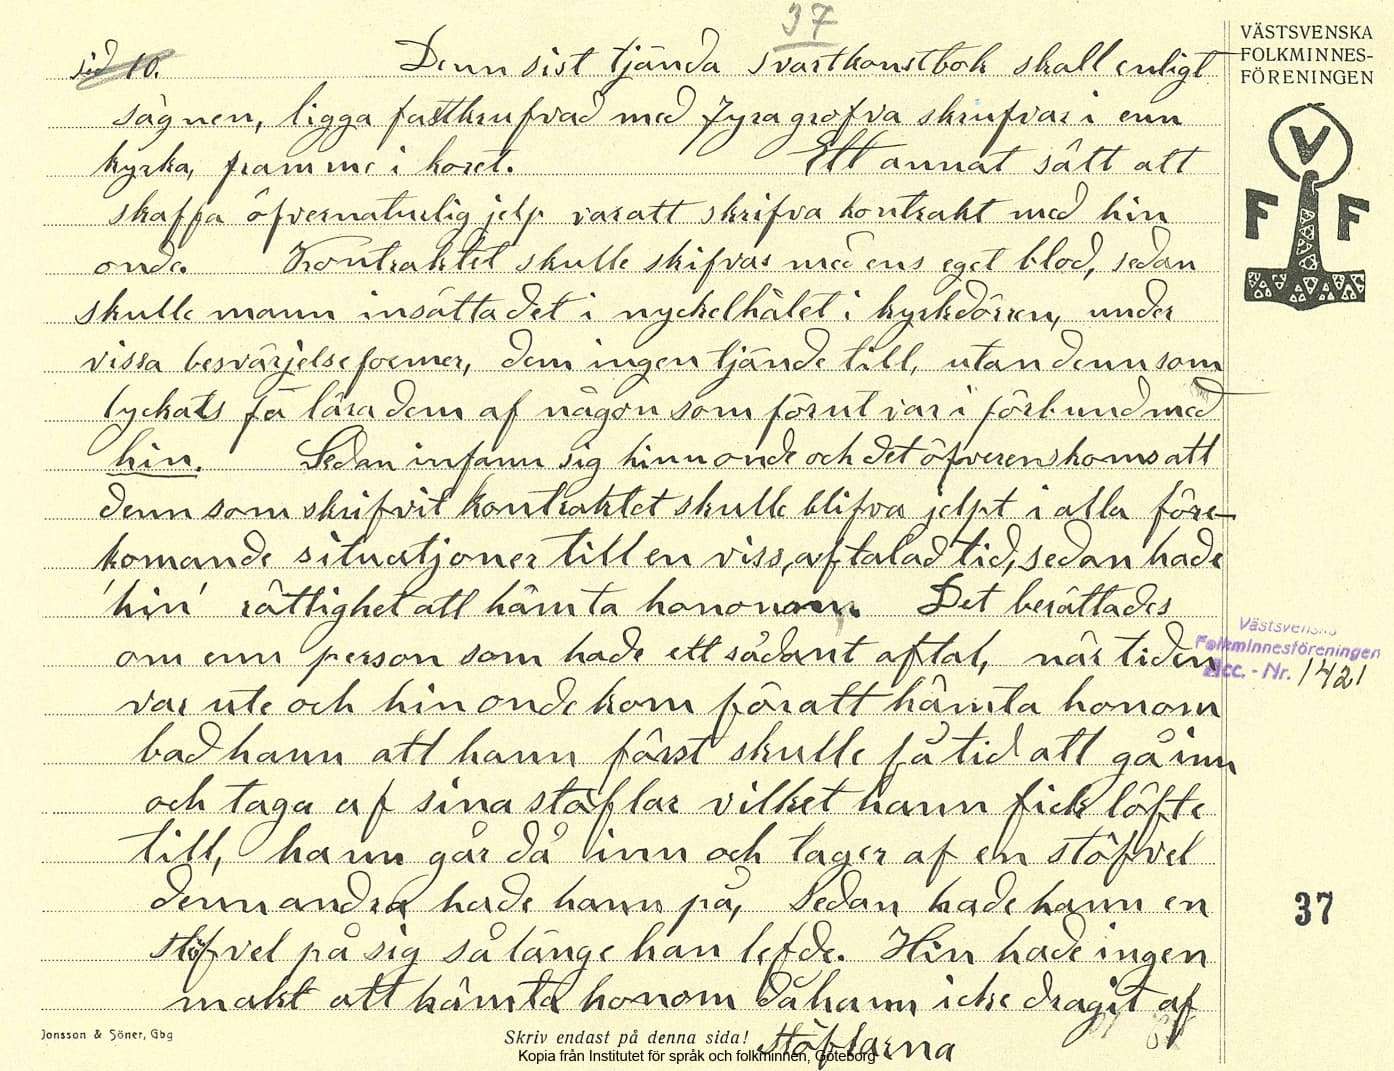 37
sid 10. Denn sist tjända svartkonstbok skall enligt
sägnen, ligga fastkrufvad med fyra grofva skrufvar i enn
kyrka, framme i koret. Ett annat sätt att
skaffa öfvernaturlig jelp var att skrifva kontrakt med hin
onde. Kontraktet skulle skifvas med ens eget blod, sedan
skulle mann insätta det i nyckelhålet i kyrkdörren, under
vissa besvärjelseformer, dem ingen tjände till, utan denn som
lyckats få lära dem af någon som förut var i förbund med
hin. Sedan infann sig hinn onde och det öfverenskoms att
denn som skrifvit kontraktet skulle blifva jelpt i alla före-
komande situatjoner till en viss, aftalad tid, sedan hade
'hin' rättighet att hämta honom. Det berättades
om enn person som hade ett sådant aftal, när tiden
var ute och hin onde kom för att hämta honom
bad hann att hann först skulle få tid att gå inn
och taga af sina stöflar vilket hann fick löfte
till, hann går då inn och tager af en stöfvel
denn andra hade hann på, Sedan hade hann en
stöfvel på sig så länge han lefde. Hin hade ingen
makt att hämta honom då hann icke dragit af
stöflarna
VÄSTSVENSKA
FOLKMINNES-
FÖRENINGEN
V
F F
Västsvenska
Folkminnesföreningen
Acc. - Nr. 1421
37
Jonsson & Söner, Gbg
Skriv endast på denna sida!
Kopia från Institutet för språk och folkminnen, Göteborg